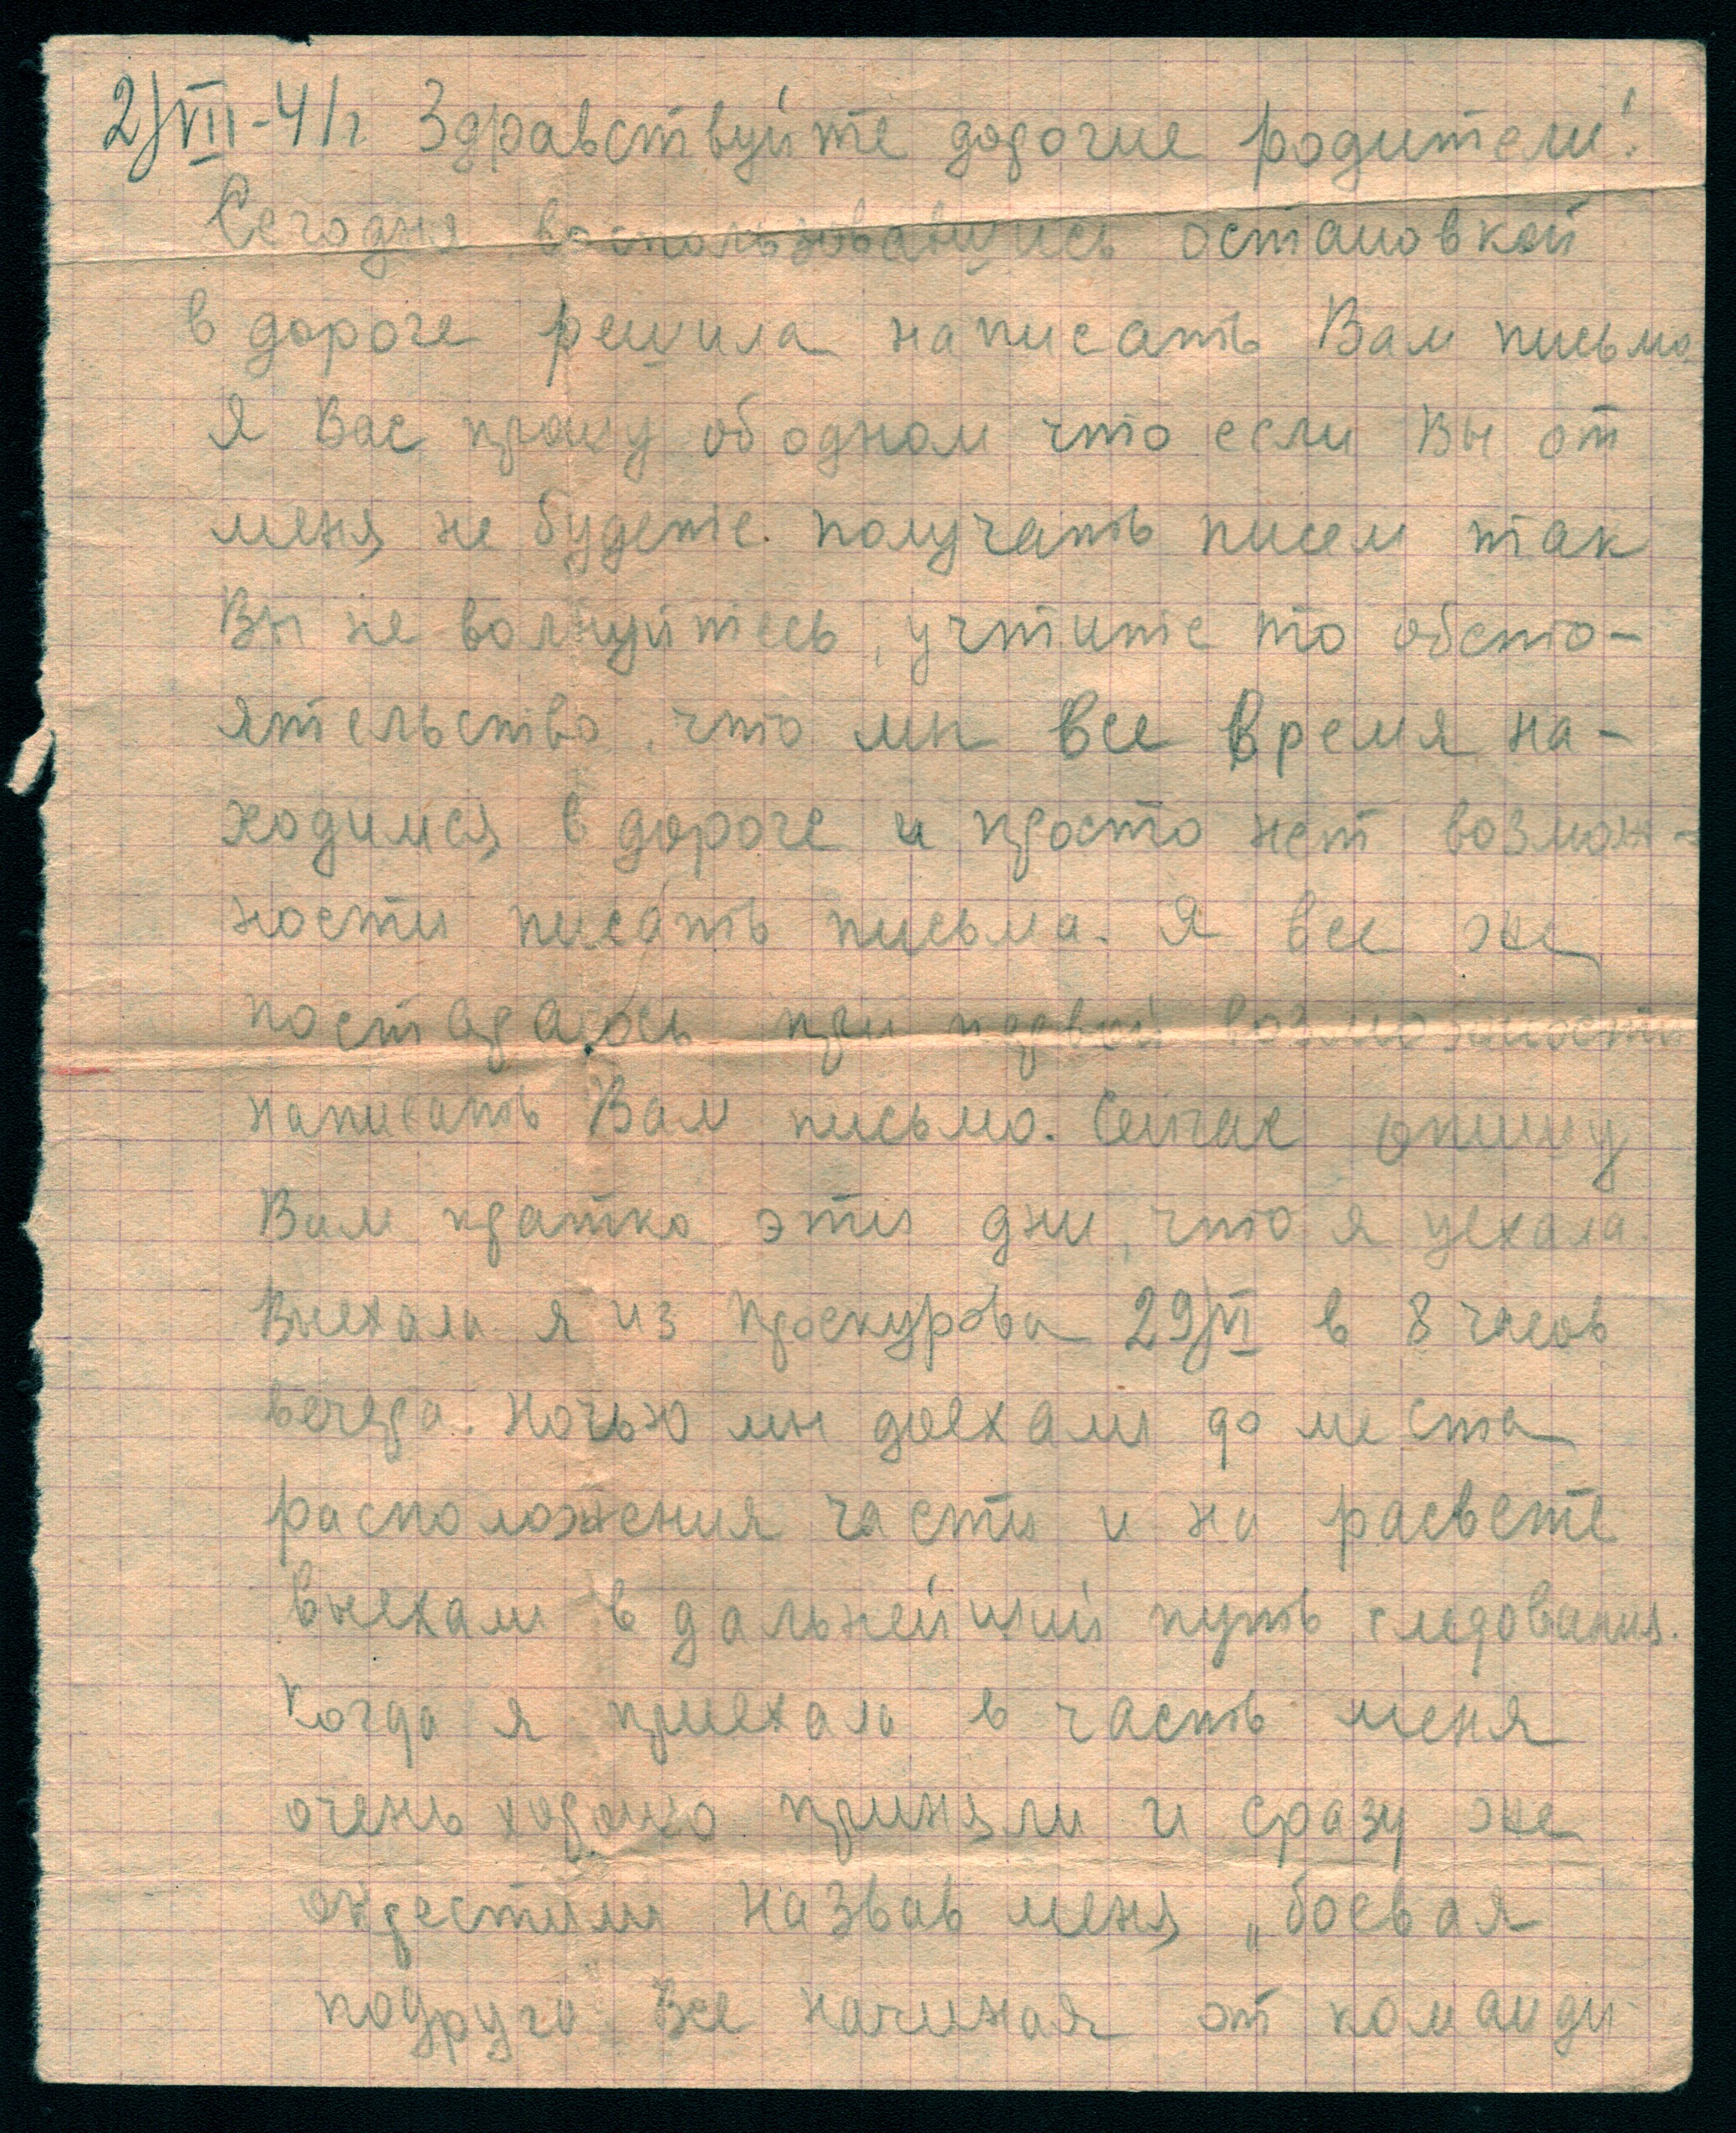 2/VII-41г Здравствуйте дорогие родители!
Сегодня воспользовавшись остановкой
в дороге решила написать Вам письмо
Я Вас прошу об одном что если Вы от
меня не будете получать писем так
Вы не волнуйтесь, учтите то обсто-
ятельство, что мы все время на-
ходимся в дороге и просто нет возмож-
ности писать письма. Я все же
постараюсь при первой возможности
написать Вам письмо. Сейчас опишу
Вам кратко эти дни, что я уехала.
Выехала я из Проскурова 29/VI в 8 часов
вечера. Ночью мы доехали до места
расположения части и на расвете
выехали в дальнейший путь следования.
Когда я приехала в часть меня
очень хорошо приняли и сразу же
окрестили назвав меня „боевая
подруга. Все начиная от команди-